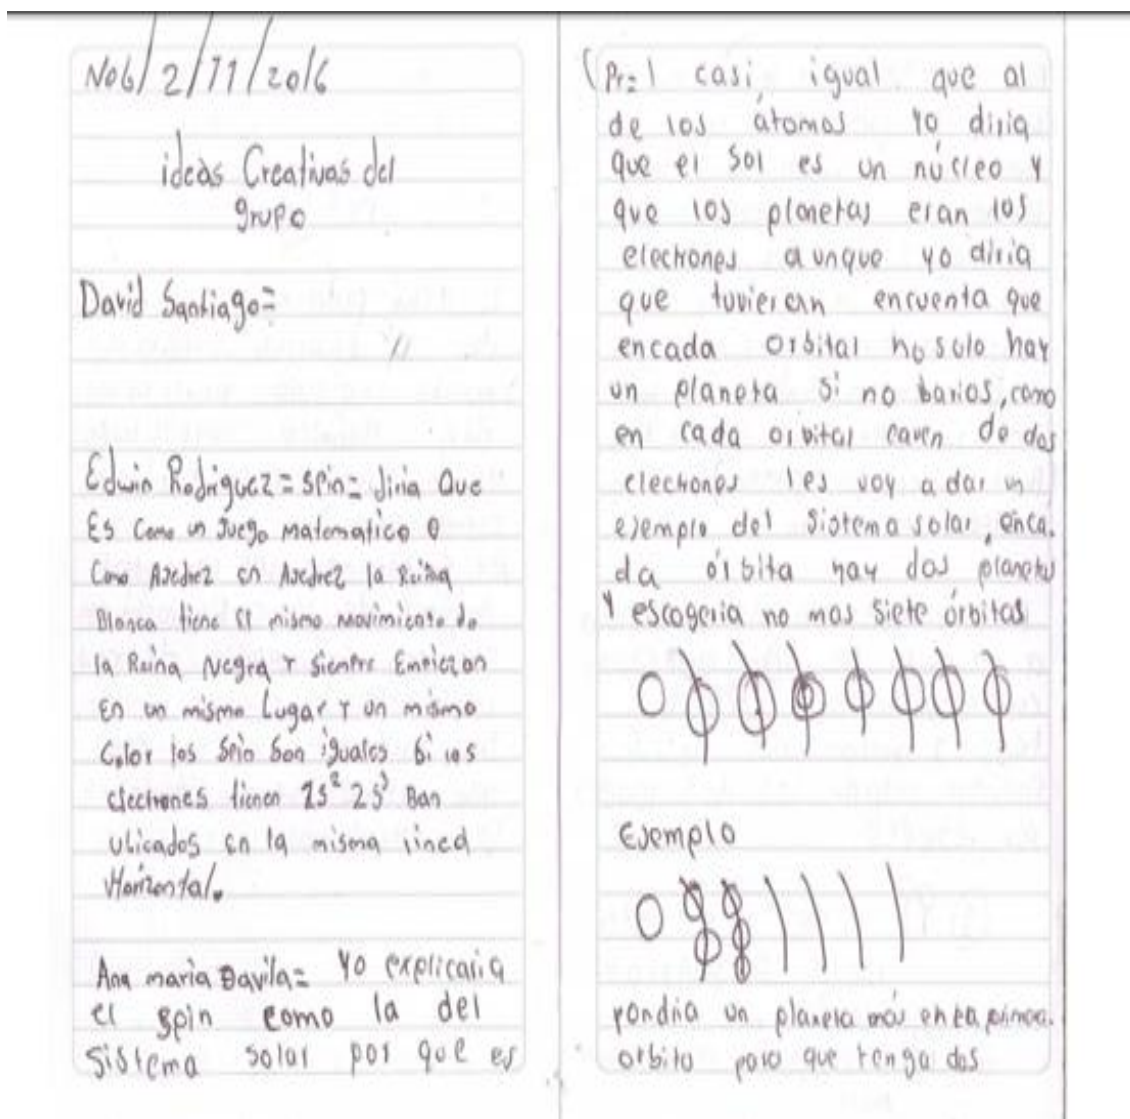 Nob/2/11/2016
ideas Creativas del
grupo
David Santiago=
Edwin Rodriguez = spin = diria Que
Es Como un Juego matematico o
Como Axedrez en Axedrez la Reina
Blanca tiene el mismo movimiento de
la Reina Negra Y Siempre Empiezan
En un mismo Lugar Y un mismo
Color los Spin Son iguales Si los
electrones tienen 1s² 2s³ Ban
ubicados en la misma linea
Horizontal.
Ana maria Davila= Yo explicaria
el spin como la del
Sistema solar por que es
casi igual que al
de los átomos Yo diria
que el Sol es un núcleo y
que los planetas eran los
electrones aunque yo diria
que tuvieran encuenta que
encada orbital no solo hay
un planeta Si no barios, como
en cada orbital caven de dos
electrones les voy a dar un
ejemplo del Sistema solar, enca.
da órbita hay dos planetas
Y escogeria no mas Siete órbitas
Ejemplo
pondria un planeta más en la
orbita para que tenga dos